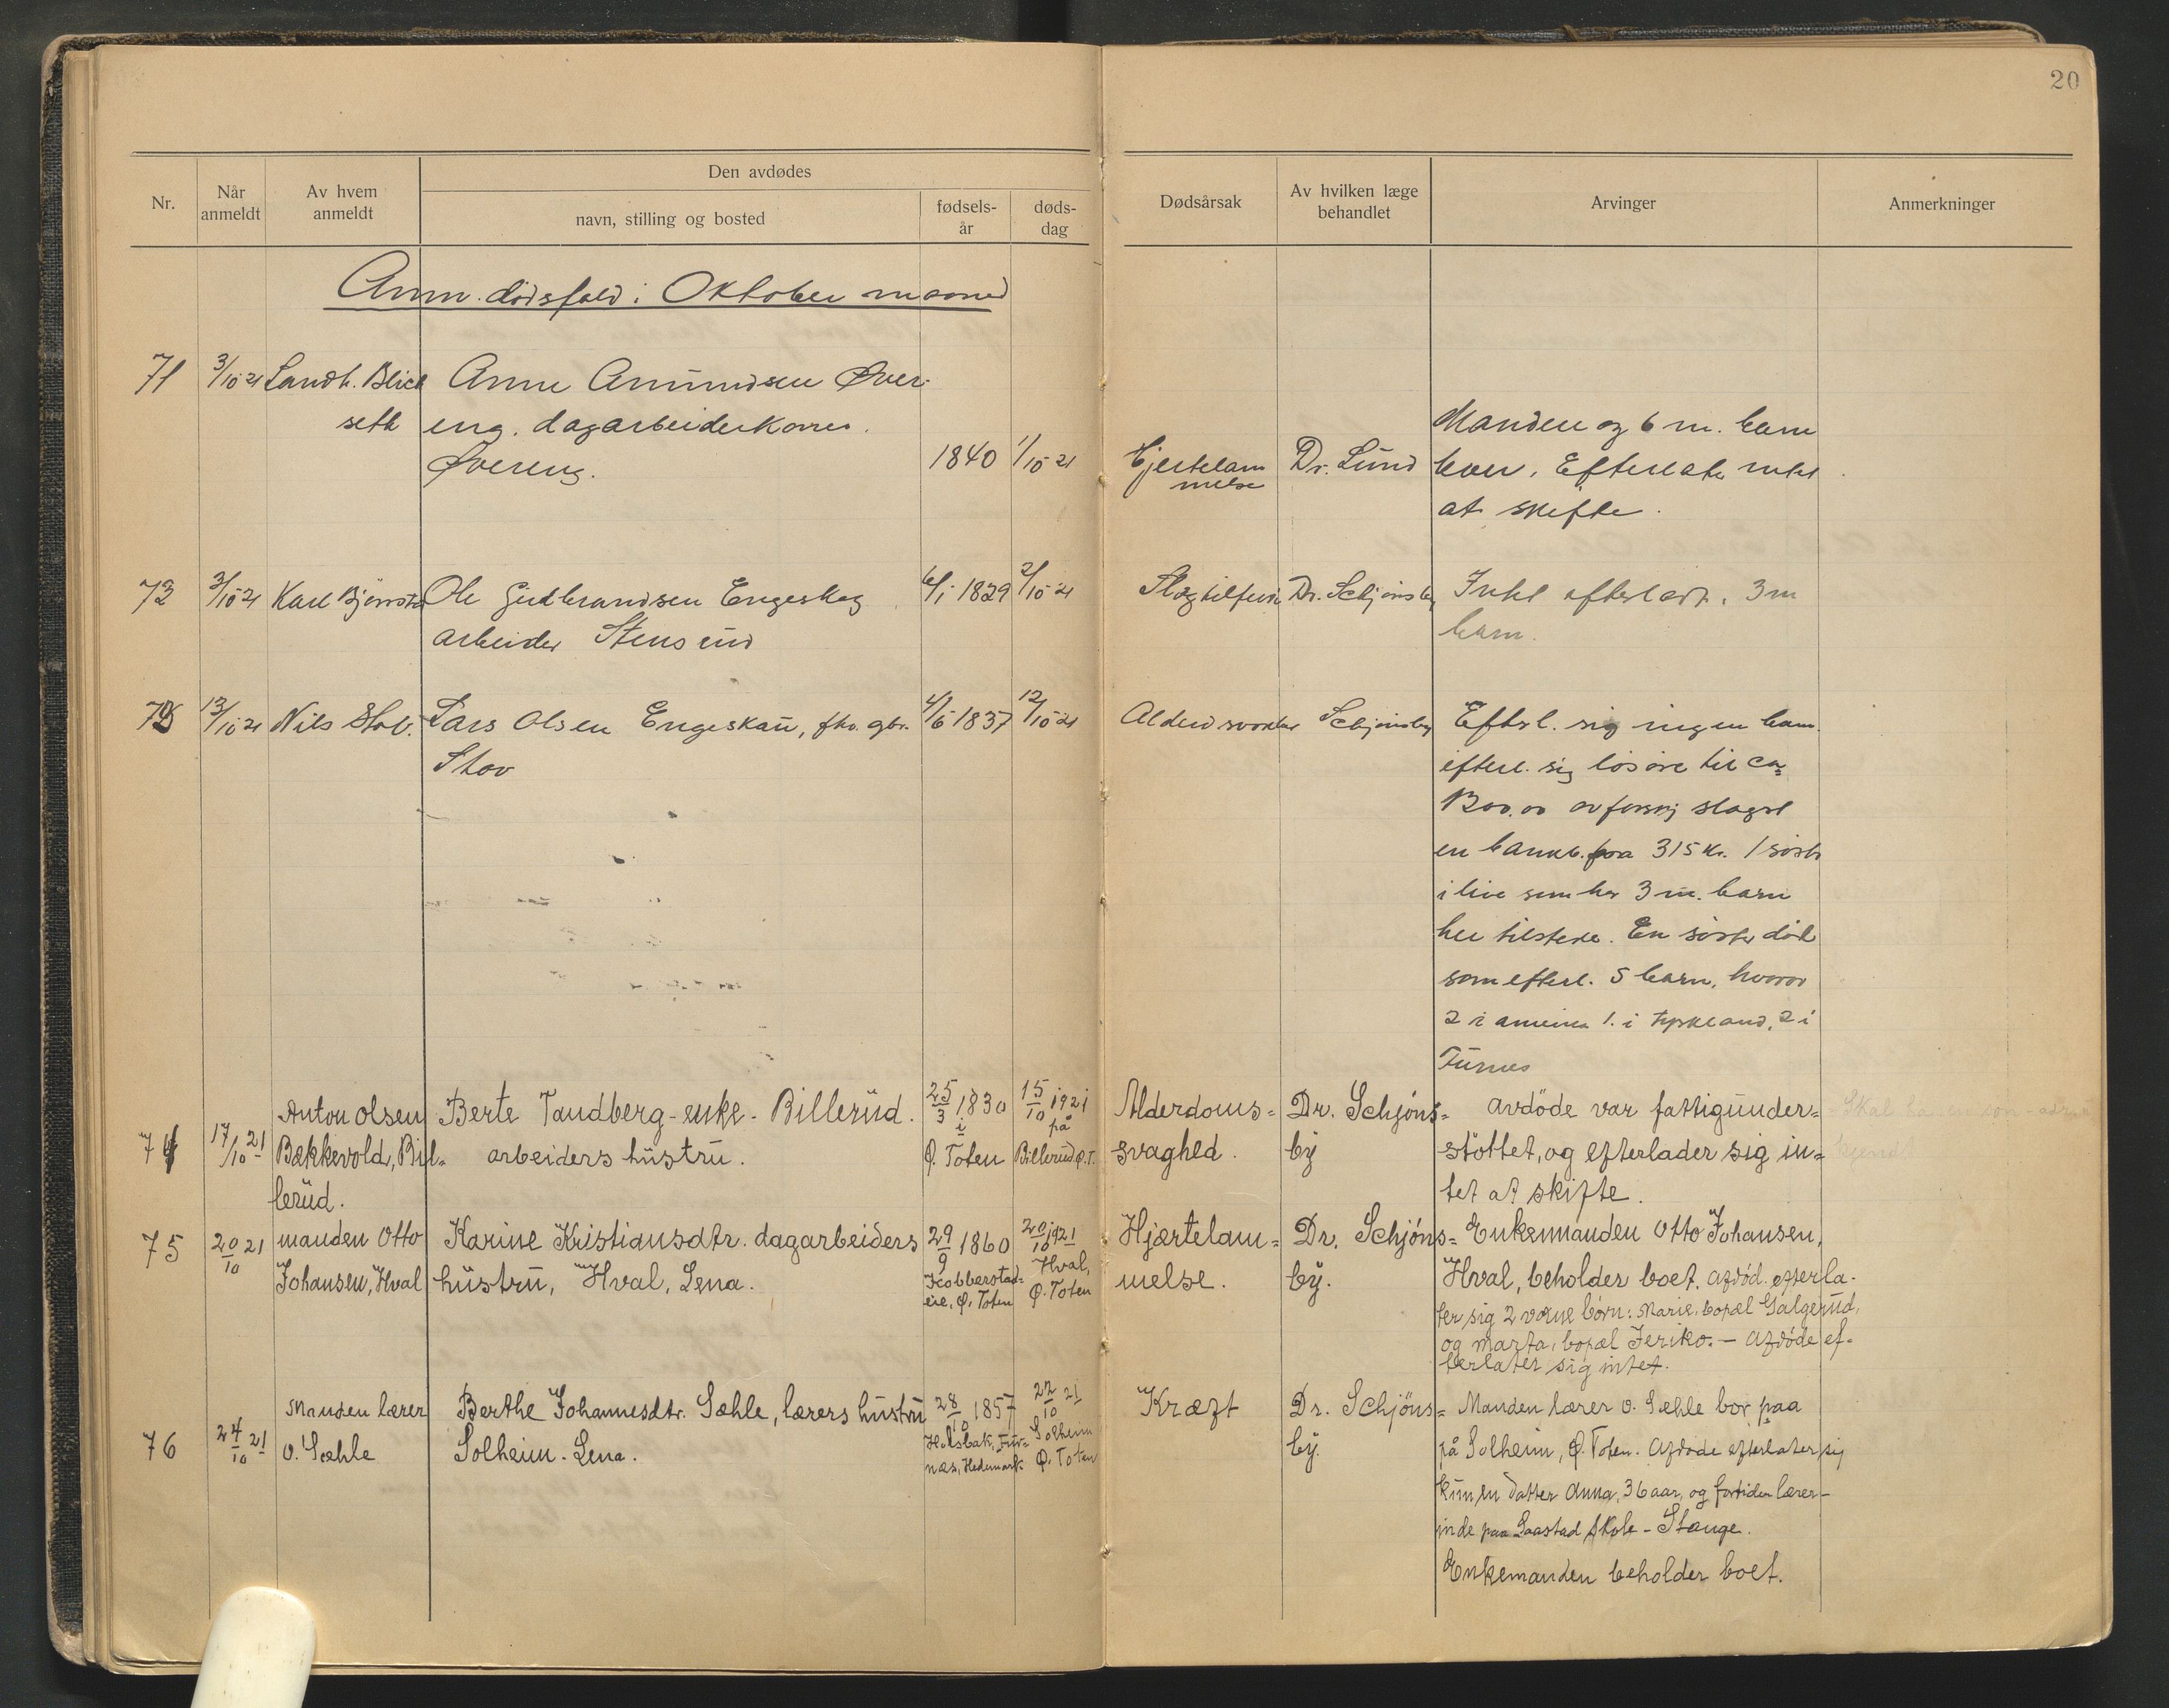 20
Den avdødes
Nr.
Når anmeldt
Av hvem anmeldt
navn, stilling og bosted
fødsels-år
døds-dag
Dødsårsak
Av hvilken læge behandlet
Arvinger
Anmerkninger
Anm. dødsfald i Oktober maaned
71 3/10 21 Landh. Blich Anne Amundsen Øver-
seth eng. dagarbeiderkone.
Øvereng. 1840 1/10 21
Hjertelam
melse
Dr. Lund
Manden og 6 m. barn
lever. Efterlater intet
at skifte.
72 3/10 21 Karl Bjørnsta Ole Gudbrandsen Engeskog 6/1 1829 2/10 21
arbeider Stensrud
Slagtilfelde Dr. Schjønsby Intet efterladt. 3 m
barn.
73 13/10 21 Nils Stov. Lars Olsen Engeskau, fhv. gbr. 4/6 1837 12/10 21
Stov
Alderdsvakhet Schjønsby
Efterl. sig ingen barn.
efterl. sig løsøre til ca
av forskj slagst
en bankb. paa 315 kr. 1 søster
i live som har 3 m. barn
her tilstede. En søster død
som efterl. 5 barn, hvorav
2 i amerika 1. i tyskland, 2 i
Furnes
74 17/10 21
Anton Olsen
Bækkevold, Bil-
lerud.
Berte Tandberg - enke - Billerud.
arbeiders hustru.
25/3 1830
i
Ø. Toten
15/10 1921
på
Billerud Ø.T.
Alderdoms-
svaghed.
Dr. Schjøns-
by
avdöde var fattigunder-
støttet, og efterlader sig in-
tet at skifte.
Skal
75 20/10 21
manden Otto
Johansen, Hval
Karine Kristiansdtr. dagarbeiders
hustru, Hval, Lena.
29/9 1860
Kobberstad-
eie, Ø. Toten
20/10 1921
Hval,
Ø. Toten
Hjærtelam-
melse.
Dr. Schjøns-
by.
Enkemanden Otto Johansen,
Hval, beholder boet. Afdød. efterla-
ter sig 2 vokne børn: Marie, bopæl Galgerud,
og Marta, bopæl Jeriko. - Afdøde ef-
terlater sig intet.
76 24/10 21
Manden lærer
O. Sæhle
Berthe Johannesdtr. Sæhle, lærers hustru
Solheim. Lena.
28/10 1857
Holsbak, Fur-
næs, Hedemark
22/10 21
Solheim
Ø. Toten
Kræft
Dr. Schjøns-
by.
Manden lærer O. Sæhle bor paa
på Solheim, Ø. Toten. Afdøde efterlater sig
kun en datter Anna, 36 aar, og fortiden lærer-
inde paa Saastad skole - Stange.
Enkemanden beholder boet.